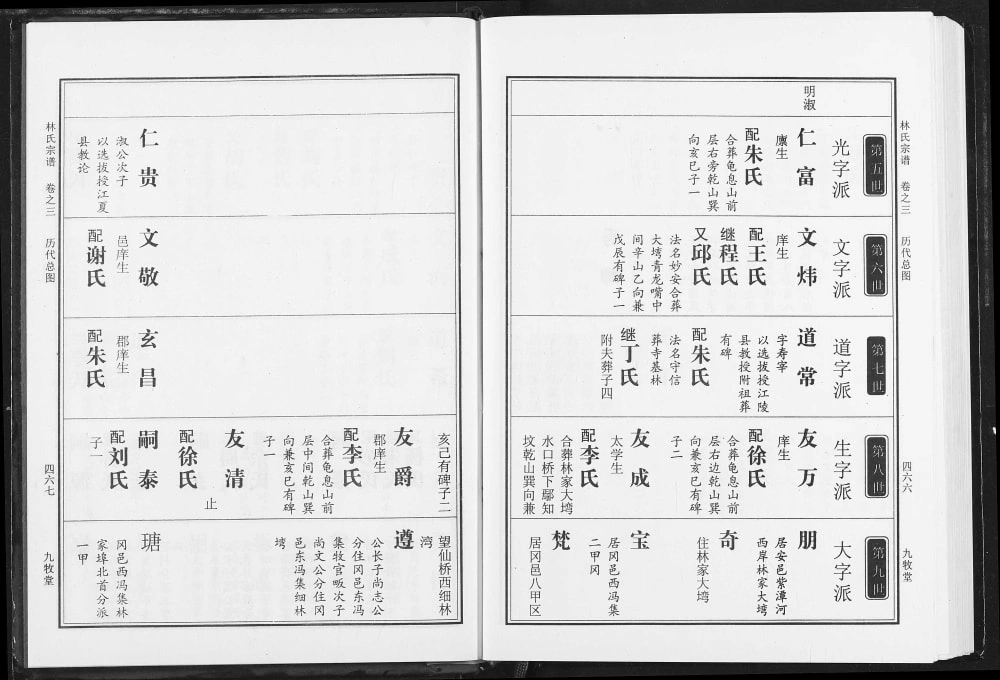 林氏宗谱 卷之三 历代总图
四六六
九牧堂
明淑
第五世
光字派
仁富
廪生
配朱氏
合葬龟息山前
层右旁乾山巽
向亥巳子一
第六世
文字派
文炜
庠生
配王氏
继程氏
又邱氏
法名妙安合葬
大塆青龙嘴中
间辛山乙向兼
戊辰有碑子一
第七世
道字派
道常
字寿宰
以选拔授江陵
县教授附祖葬
有碑
配朱氏
法名守信
葬寺基林
继丁氏
附夫葬子四
第八世
生字派
友万
庠生
配徐氏
合葬龟息山前
层右边乾山巽
向兼亥巳有碑
子二
友成
太学生
配李氏
合葬林家大塆
水口桥下鄢知
坟乾山巽向兼
第九世
大字派
朋
居安邑紫潭河
西岸林家大塆
奇
住林家大塆
宝
居冈邑西冯集
二甲冈
梵
居冈邑八甲区
仁贵
淑公次子
以选拔授江夏
县教论
文敬
邑庠生
配谢氏
玄昌
郡庠生
配朱氏
亥己有碑子二
友爵
郡庠生
配李氏
合葬龟息山前
层中间乾山巽
向兼亥巳有碑
子一
友清
止
配徐氏
嗣泰
配刘氏
子一
望仙桥西细林
湾
遵
公长子尚志公
分住冈邑东冯
集牧官畈次子
尚文公分住冈
邑东冯集细林
塆
瑭
冈邑西冯集林
家埠北首分派
一甲
林氏宗谱 卷之三 历代总图
四六七
九牧堂